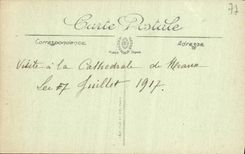 77
Carte Postale
Correspondance
Adresse
Visite à la Cathédrale de Meaux
Le 17 Juillet 1917.